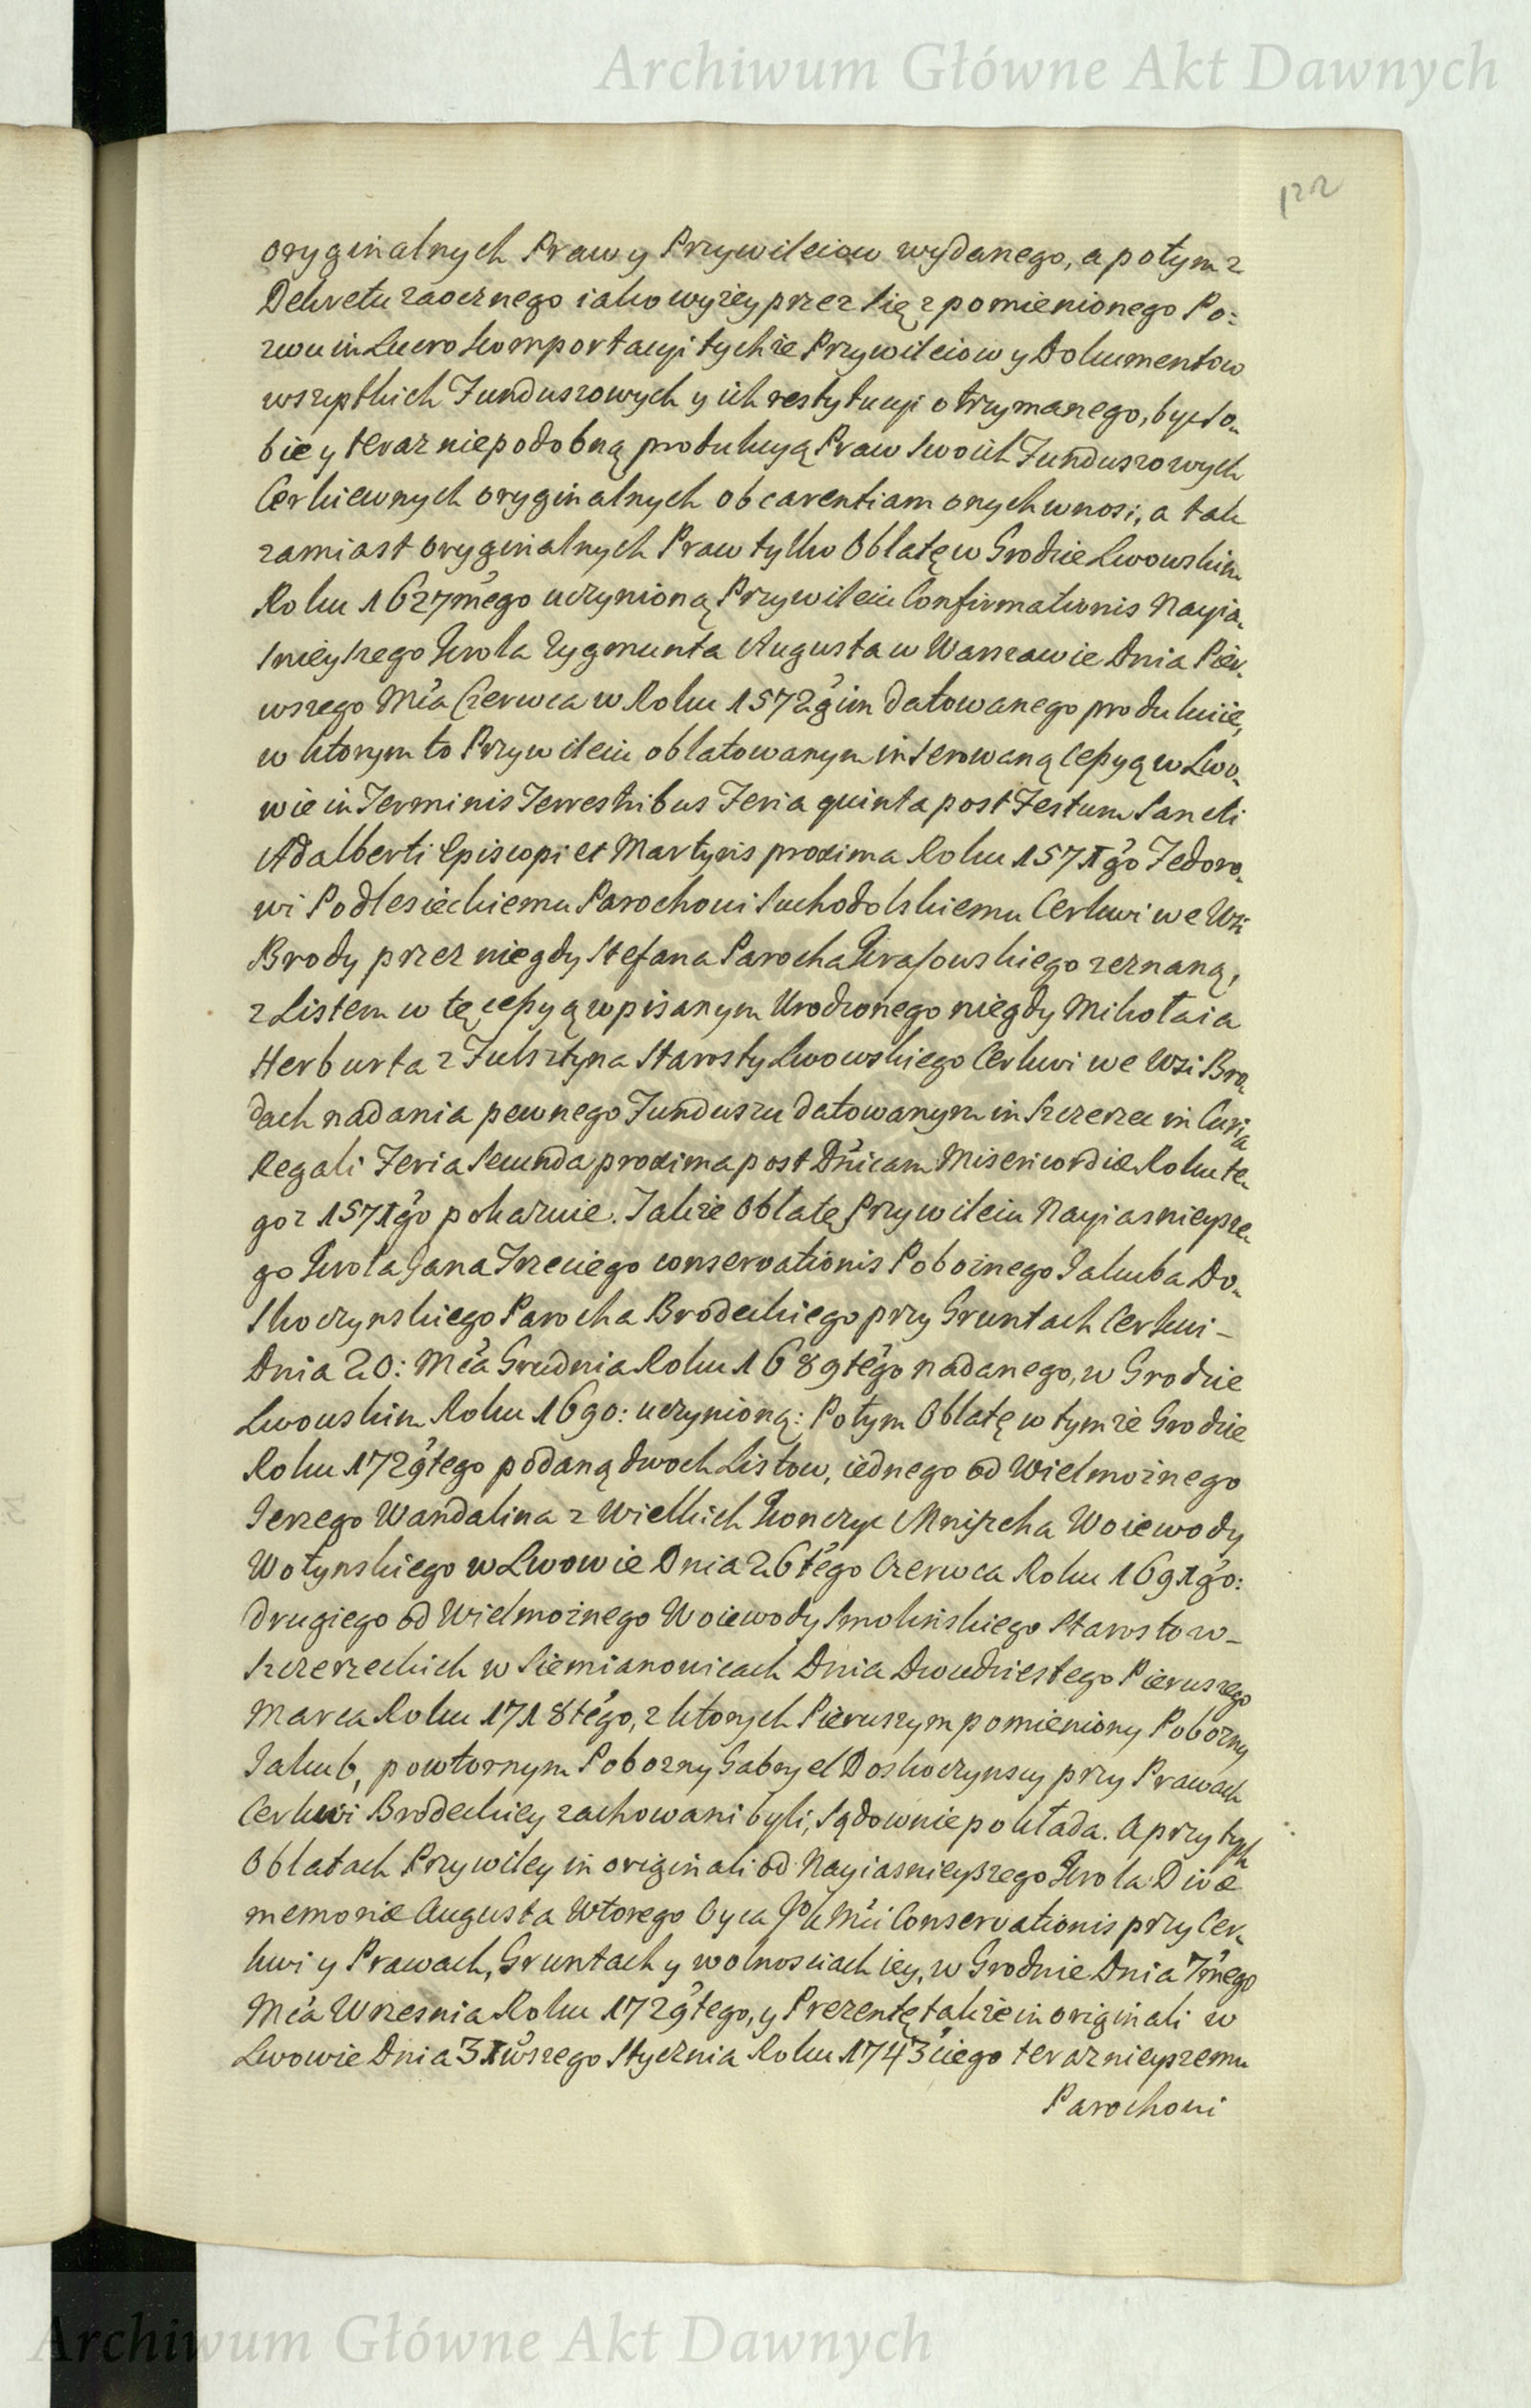 Archiwum Główne Akt Dawnych
122
oryginalnych Praw y Przywileiow wydanego, a potym z
Dekretu zaocznego iako wyżey przez się z pomienionego Po:
zwu in Lucro komportacyi tychże Przywileiow y Dokumentow
wszystkich Funduszowych y ich restytucyi otrzymanego, być so„
bie y teraz niepodobną produkcyą Praw swoich Funduszowych
Cerkiewnych oryginalnych ob carentiam onych wnosi, a tak
zamiast oryginalnych Praw tylko Oblatę w Grodzie Lwowskim
Roku 1627mego uczynioną Przywileiu Confirmationis Nayia„
snieyszego Krola Zygmunta Augusta w Warszawie Dnia Pier„
wszego Mca Czerwca w Roku 1572gim datowanego produkuie,
w ktorym to Przywileiu oblatowanym inserowaną cessyą w Lwo„
wie in Terminis Terrestribus Feria quinta post Festum Sancti
Adalberti Episcopi et Martyris proxima Roku 1571go Fedoro„
wi Podlesieckiemu Parochowi Suchodolskiemu Cerkwi we Wsi
Brody przez niegdy Stefana Parocha Krasowskiego zeznaną,
z Listem w tę cessyą wpisanym Urodzonego niegdy Mikołaia
Herburta z Fulsztyna Starosty Lwowskiego Cerkwi we Wsi Bro„
dach nadania pewnego Funduszu datowanym in Szczerzec in Curia
Regali Feria Secunda proxima post Dnicam Misericordiæ Roku te„
goz 1571go pokazuie. Takze Oblatę Przywileiu Nayiasnieysze„
go Krola Jana Trzeciego conservationis Pobożnego Jakuba Do„
skoczynskiego Parocha Brodeckiego przy Gruntach Cerkwi –
Dnia 20: Mca Grudnia Roku 1689tego nadanego, w Grodzie
Lwowskim Roku 1690: uczynioną: Potym Oblatę w tymże Grodzie
Roku 1729tego podaną dwoch Listow, iednego od Wielmożnego
Jerzego Wandalina z Wielkich Konczyc Mniszcha Woiewody
Wołynskiego w Lwowie Dnia 26tego Czerwca Roku 1691go:
drugiego od Wielmożnego Woiewody Smolinskiego Starostow –
Szczerzeckich w Siemianowicach Dnia Dwudziestego Pierwszego
Marca Roku 1718tego, z ktorych Pierwszym pomieniony Pobożny
Jakub, powtornym Pobozny Gabryel Doskoczynscy przy Prawach
Cerkwi Brodeckiey zachowani byli, sądownie pokłada. A przy tych
Oblatach Przywiley in originali od Nayiasnieyszego Krola Divæ
memoriæ Augusta Wtorego Oyca Mci Conservationis przy Cer„
kwi y Prawach, Gruntach y wolnosciach iey, w Grodnie Dnia 7mego
Mca Wrzesnia Roku 1729tego, y Prezentę takze in originali w
Lwowie Dnia 31wszego Stycznia Roku 1743ciego teraznieyszemu
Parochowi
Archiwum Główne Akt Dawnych